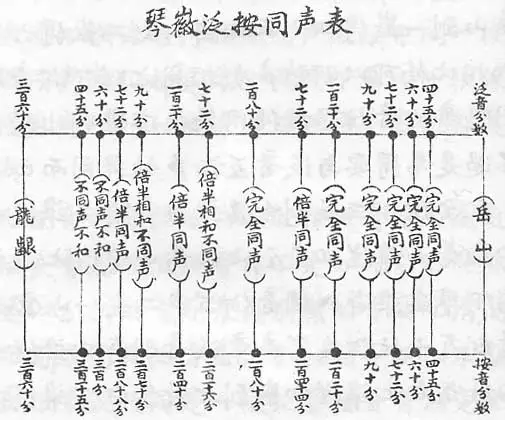 琴徽泛按同声表
泛音分数
（岳山）
按音分数
四十五分
（完全同声）
四十五分
六十分
（完全同声）
六十分
七十二分
（完全同声）
七十二分
九十分
（完全同声）
九十分
一百二十分
（完全同声）
一百二十分
七十二分
（倍半同声）
一百四十四分
一百八十分
（完全同声）
一百八十分
七十二分
（倍半相和不同声）
二百十六分
一百二十分
（倍半同声）
二百四十分
九十分
（倍半相和不同声）
二百七十分
七十二分
（倍半同声）
二百八十八分
六十分
（不同声不和）
三百分
四十五分
（不同声不和）
三百十五分
三百六十分
（龍齦）
三百六十分